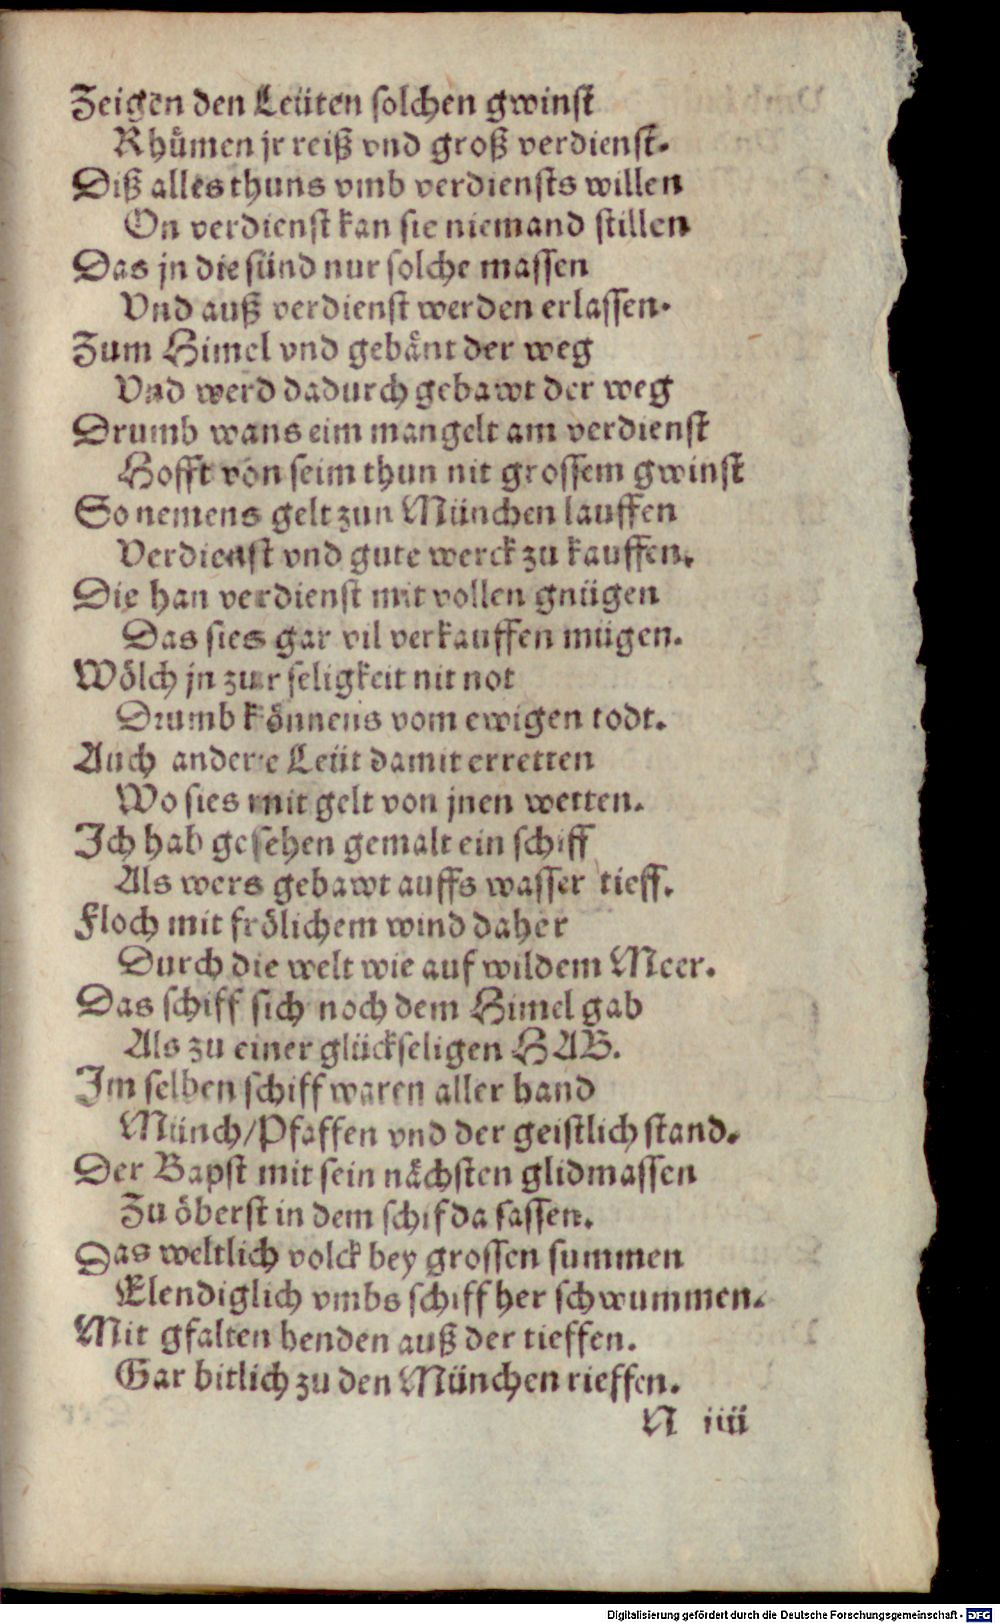 Zeigen den Leüten solchen gwinst
Rhümen jr reiß vnd groß verdienst.
Diß alles thuns vmb verdiensts willen
On verdienst kan sie niemand stillen
Das jn die sünd nur solche massen
Vnd auß verdienst werden erlassen.
Zum Himel vnd gebänt der weg
Vnd werd dadurch gebawt der weg
Drumb wans eim mangelt am verdienst
Hofft von seim thun nit grossem gwinst
So nemens gelt zun München lauffen
Verdienst vnd gute werck zu kauffen.
Die han verdienst mit vollen gnügen
Das sies gar vil verkauffen mügen.
Wölch jn zur seligkeit nit not
Drumb könnens vom ewigen todt.
Auch andere Leüt damit erretten
Wo sies mit gelt von jnen wetten.
Ich hab gesehen gemalt ein schiff
Als wers gebawt auffs wasser tieff.
Floch mit frölichem wind daher
Durch die welt wie auf wildem Meer.
Das schiff sich noch dem Himel gab
Als zu einer glückseligen HAB.
Im selben schiff waren aller hand
Münch/Pfaffen vnd der geistlich stand.
Der Bapst mit sein nächsten glidmassen
Zu öberst in dem schif da sassen.
Das weltlich volck bey grossen summen
Elendiglich vmbs schiff her schwummen.
Mit gfalten henden auß der tieffen.
Gar bitlich zu den München rieffen.
N iiii
Digitalisierung gefördert durch die Deutsche Forschungsgemeinschaft - DFG